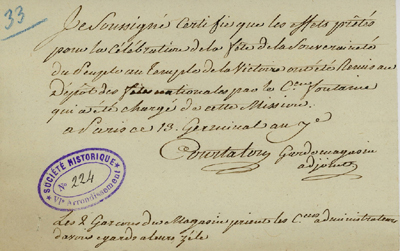 33
Je Soussigné Certifie que les effets prêtés
pour la Célébration de la fête de la Souveraineté
du Peuple au Temple de la Victoire ont été Remis au
Depôt des fêtes nationales par le C.en fontaine
qui a été chargé de cette Mission.
a Paris ce 13. Germinal an 7.e
Garde magasin
adjoint
SOCIÉTÉ HISTORIQUE
No 224
VIe Arrondissement
Les 2 Garçons du Magasin prient les C.ens administrateurs
d'avoir égard a leur zèle